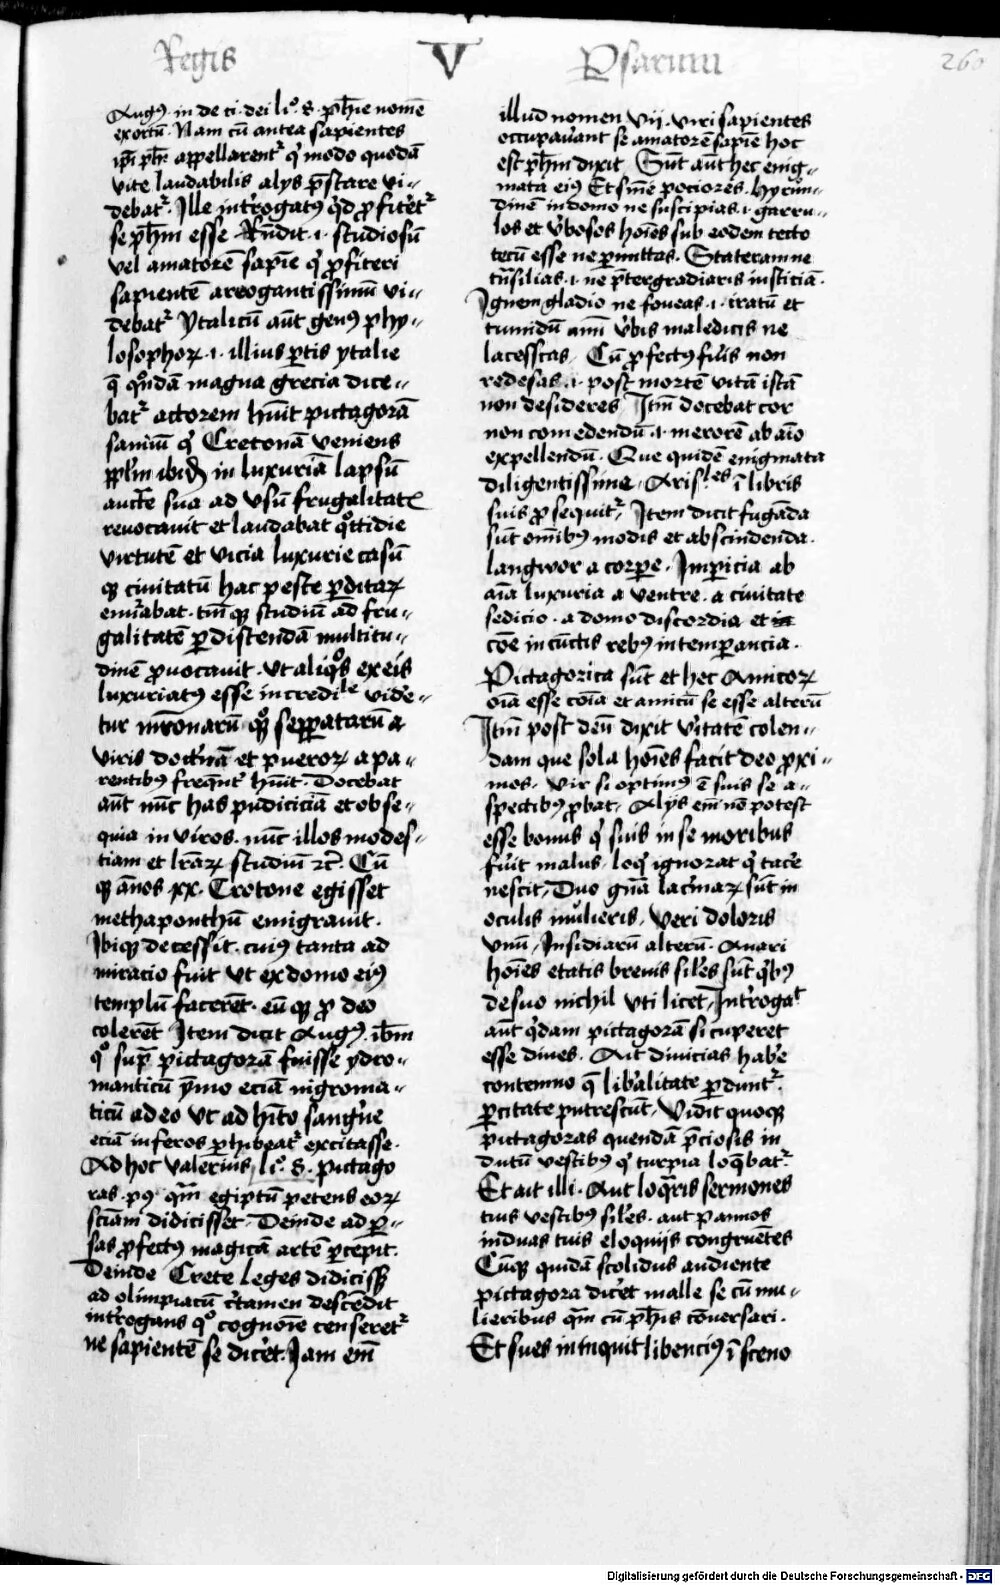 Regis V Psarum 260
Augꝰ in de ci. dei liº. 8. ph̄ie nomē
exortū. Nam cū antea sapientes
ip̄i ph̄i appellarentᷣ qͥ modo quodā
vite laudabilis alys p̄stare vi-
debatᷣ. Ille int̓rogatꝰ qͥd ꝓfitetᷣ
se ph̄m esse Rn̄dit .i. studiosū
vel amatorē sapīe qͥ ꝓfiteri
sapientē arrogantissimū vi-
debatᷣ Ytalicū aūt genꝰ phy-
losophoꝝ .i. illius ꝑtis ytalie
q̄ qͦndā magna grecia dice-
batᷣ actorem hūit pictagorā
samiū qͥ Cretonā veniens
pplm̄ ibid̄ in luxuriā lapsū
auctē sua ad vsū frugalitatē
reuocauit et laudabat qͦttidie
virtutē et vicia luxurie casū
qꝫ ciuitatū hac peste ꝑditaꝝ
enūabat. tm̄qꝫ studiū ad fru-
galitatē ꝑdistendā multitu-
dinē ꝓuocauit. vt aliqͦs ex eis
luxuriatꝰ esse incredile vide-
tur m̄ronarū qͦꝫ seꝑatarū a
viris doct̓nā et pueroꝝ a pa-
rentibꝰ freqn̄t̓ hūit. Docebat
aūt nūc has pudiciciā et obse-
quia in viros. nūc illos modes-
tiam et lr̄aꝝ studiū ⁊c̄. Cū
qꝫ ān̄os xx. Crotone egisset
methaponthū emigrauit.
Ibiqꝫ decessit. cuiꝰ tanta ad
miracio fuit vt ex domo eiꝰ
templū facerēt. eū qꝫ ꝓ deo
colerēt Item dicit Augꝰ. ibm̄
qͦ sup̄ pictagorā fuisse ydro-
manticū ymo eciā nigroma-
ticū adeo vt ad hito sangͥne
eciā inferos ꝑhibeatᷣ excitasse.
Ad hoc valerius, liº. 8. pictago
ras. pꝰ qm̄ egiptū petens eoꝝ
sciām didicisset. Deinde ad ꝑ-
sas ꝓfectꝰ magicā artē ꝑcepit.
Deinde Crete leges didicisꝫ
ad olimpiacū c̓tamen descēdit
int̓rogans qͦ cognoīe censeretᷣ
ne sapientē se dic̓et. Iam em̄
illud nomen vij. viri sapientes
occupau̓ant se amatorē sapīe hoc
est ph̄m dixit Sūt aūt hec enig-
mata eiꝰ Et sīnē pociores. hyrun-
dinē in domo ne suscipias .i. garru-
los et v̓bosos hoīes sub eodem tecto
tecū esse ne ꝑmittas. Stateram ne
tn̄silias .i. ne p̄tergradiaris iusticiā.
Ignem gladio ne foueas .i. iratū et
tumidū anī v̓bis maledicis ne
lacessas, Cū ꝓfectꝰ fu̓is non
redeas .i. post mortē vitā istā
non desideres Itm̄ docebat cor
non comedendū .i. merorē ab aīo
expellendū. Que quidē enigmata
diligentissime, Arisles ī libris
suis ꝓsequitᷣ, Item dicit fugāda
sūt omībꝰ modis et abscindenda.
langwor a corꝑe. Imꝑicia ab
aīa luxuria a ventre. a ciuitate
sedicio. a domo discordia et in
coē in cūctis rebꝰ intemꝑancia.
Pictagorica sūt et hec Amicoꝝ
oīa esse coīa et amicū se esse alterū
Itm̄ post deū dixit v̓itatē colen-
dam que sola hoīes facit deo ꝓxi-
mos. Vir si optimꝰ ē suis se a-
spectibꝰ ꝓbat, Alys em̄ nō potest
esse bonus qͥ suis in se moribus
fu̓it malus, loqͥ ignorat qͥ tac̓e
nescit, Duo gn̄a lac̓imaꝝ sūt in
oculis mulieris, Veri doloris
vnū, Insidiarū alterū. Auari
hoīes etatis breuis sil̓es sūt qͥbꝰ
de suo nichil vti licet, Int̓rogat
aūt qͥdam pictagorā si cuperet
esse diues. Ait diuicias hab̓e
contemno q̄ lib̓alitate ꝑduntᷣ.
ꝑcitate putrescūt, Vidit quoqꝫ
pictagoras quendā p̄ciosis in
dutū vestibꝰ qͥ turpia loq̄batᷣ.
Et ait illi. Aut loq̄ris sermones
tuis vestibꝰ sil̓es. aut pannos
induas tuis eloquijs congruētes
Cūqꝫ quidā stolidus audiente
pictagora dic̓et malle se cū mu-
lieribus qm̄ cū ph̄is cōuersari.
Et sues inquit libenciꝰ ī sceno
Digitalisierung gefördert durch die Deutsche Forschungsgemeinschaft - DFG